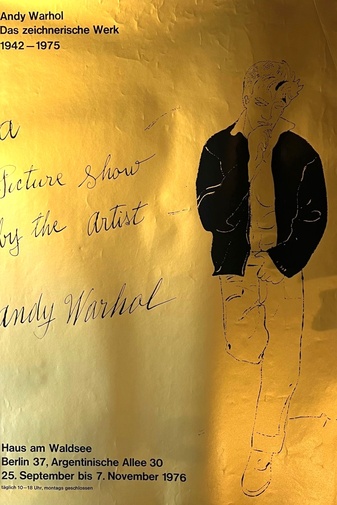 Andy Warhol
Das zeichnerische Werk
1942–1975
a
Picture show
by the artist
andy Warhol
Haus am Waldsee
Berlin 37, Argentinische Allee 30
25. September bis 7. November 1976
täglich 10–18 Uhr, montags geschlossen